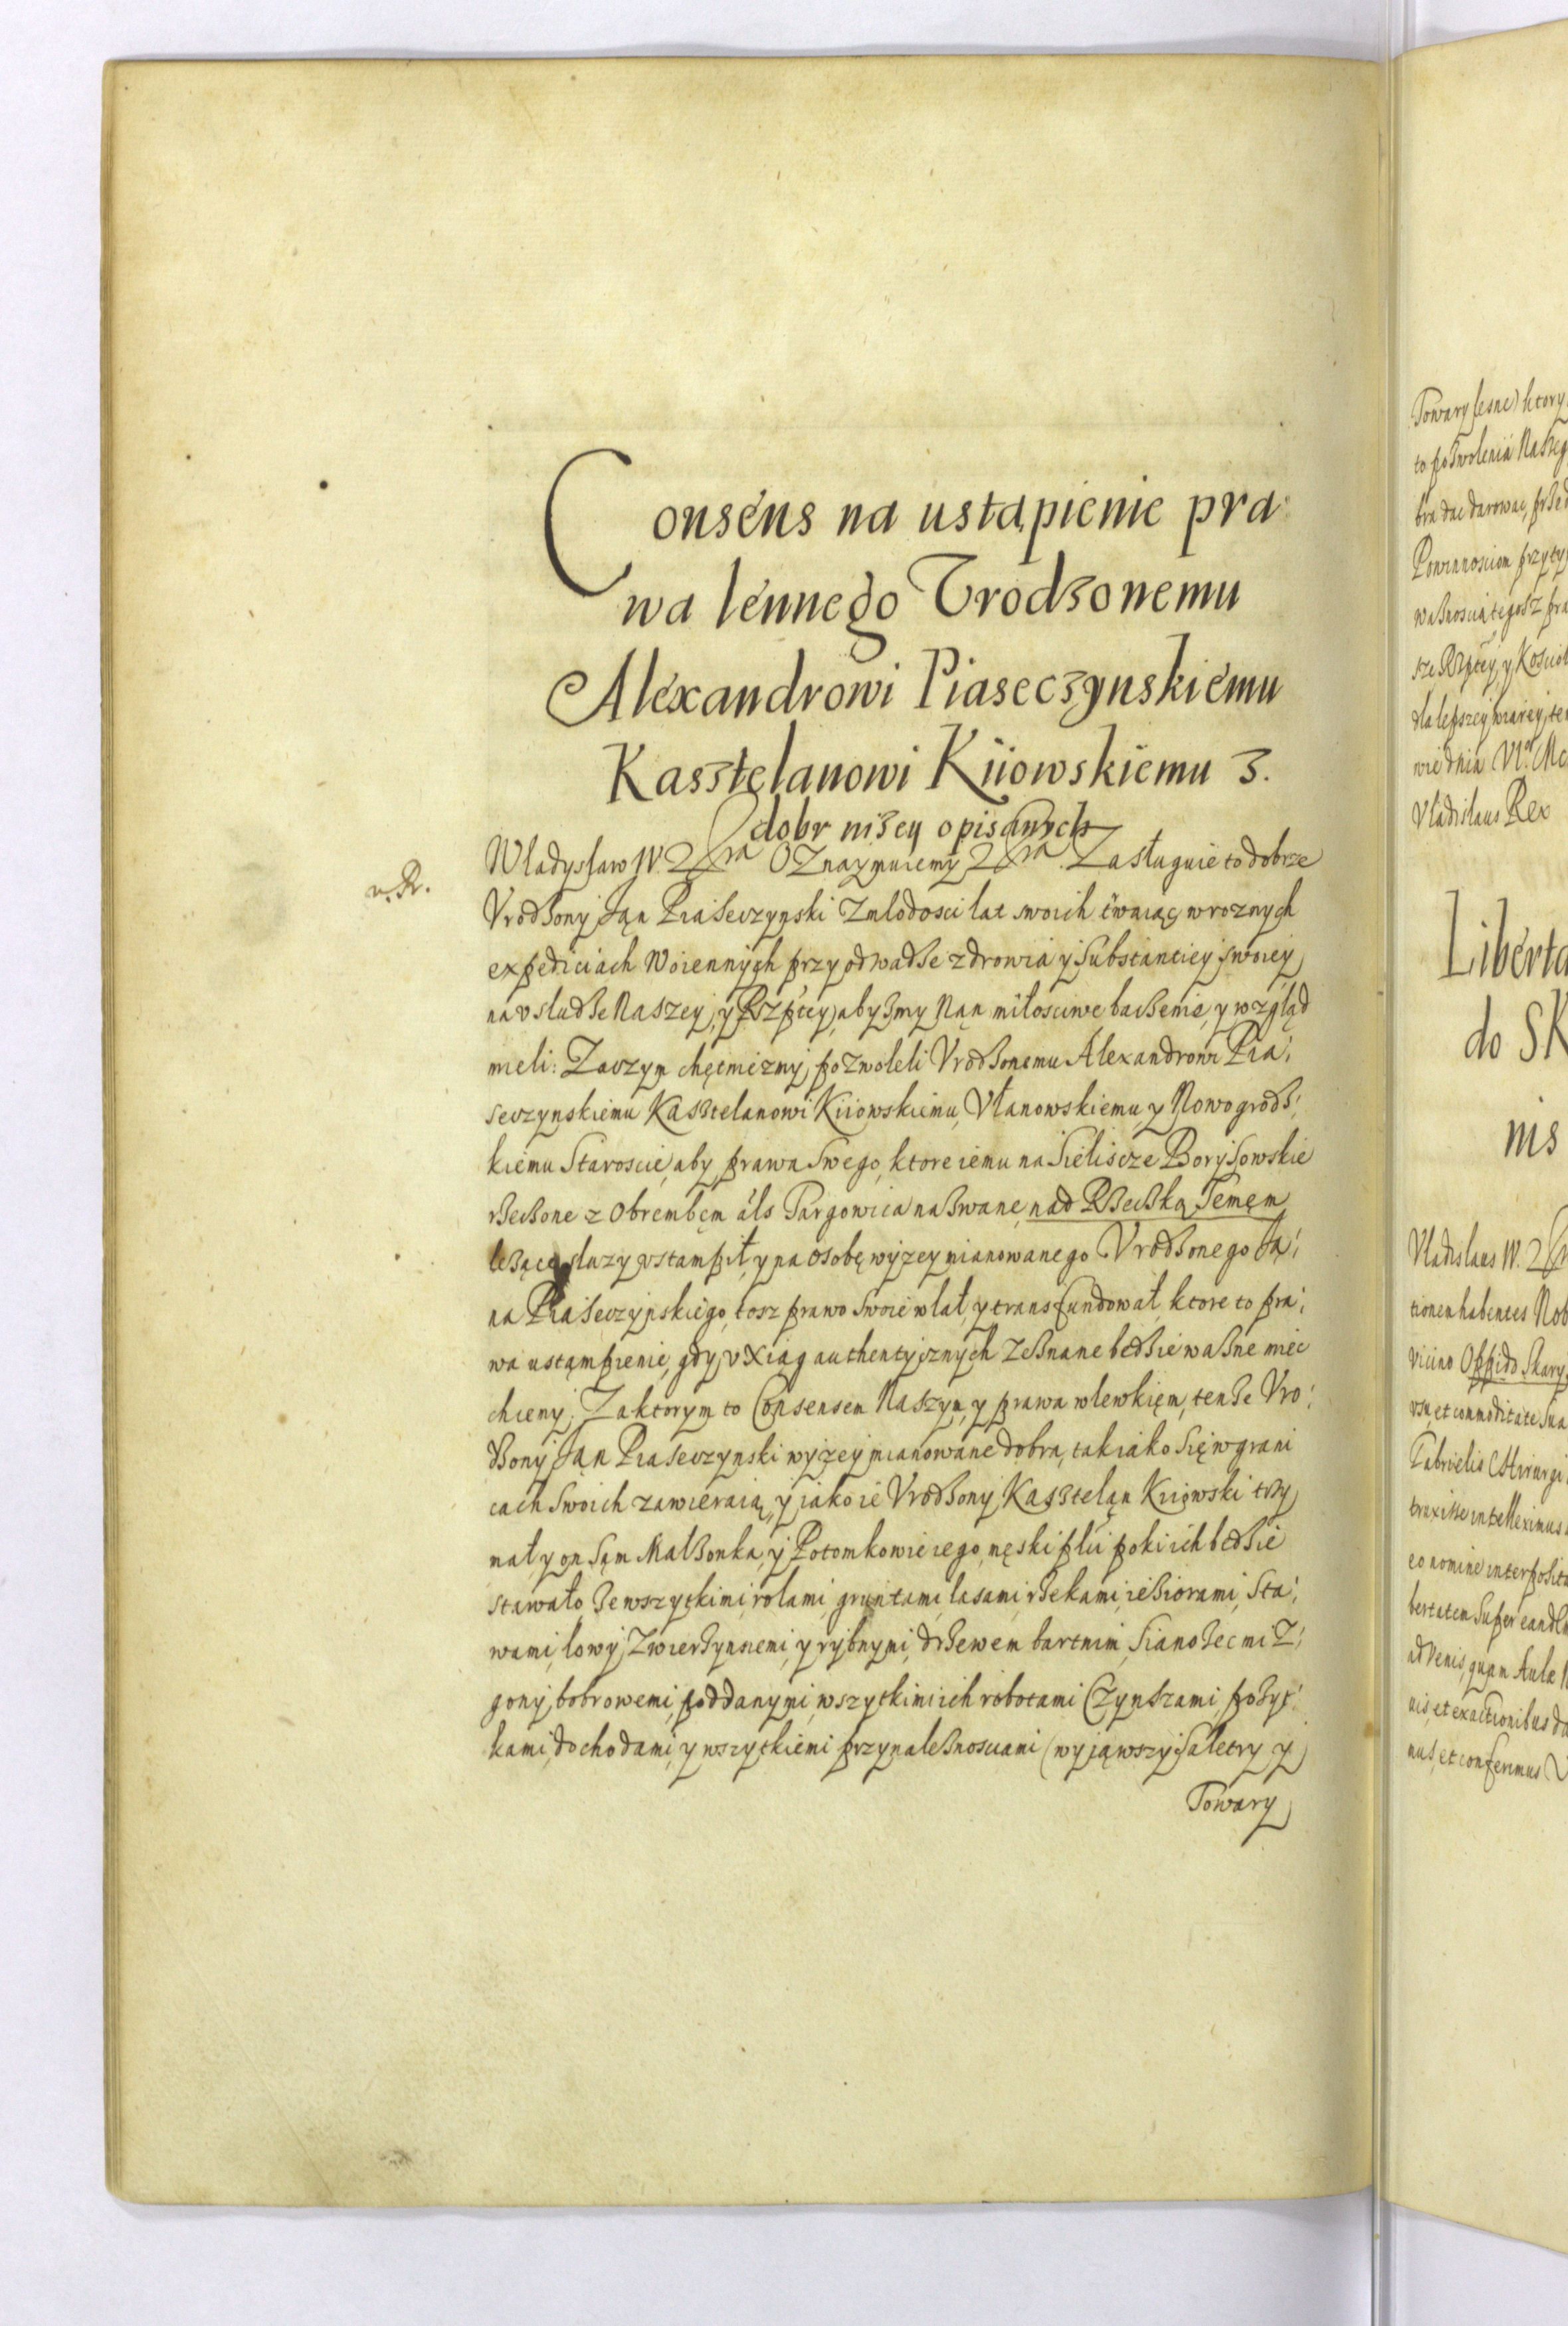 Consens na ustąpienie pra
wa lennego Vrodzonemu
Alexandrowi Piaseczynskiemu
Kasztelanowi Kiiowskiemu z.
dobr niżey opisanych
v. R.
Władysław IV. Oznaymuiemy Zasługuie to dobrze
Vrodzony Ján Piaseczynski z mlodosci lat swoich trwaiąc w roznych
expediciach woiennych przy odwadze zdrowia y substantiey swoiey
na vsludze Naszey, y Rzptey, abyzmy nąn miłosciwe baczenie, y wzgląd
mieli: Zaczym chętniezmy pozwoleli Vrodzonemu Alexandrowi Pia:
seczynskiemu Kasztelanowi Kiiowskiemu, Vłanowskiemu y Nowogrodz:
kiemu Staroscie, aby prawa swego, ktore iemu na Sieliscze Borysowskie
rzeczone z Obrembęm als Targowica nazwane, nad Rzeczką Temęm
leżące służy vstąmpił, y na osobę wyżey mianowanego Vrodzonego Ja:
na Piaseczynskiego, tosz prawo swoie wlał, y transfundował, ktore to pra:
wa ustąmpienie, gdy v Xiąg authentycznych zeznane będzie ważne miec
chcemy. Za ktorym to Consensem Naszym, y prawa wlewkięm, tenże Vro:
dzony Ján Piaseczynski wyżey mianowane dobra, tak iako się w grani
cach swoich zawieraią, y iako ie Vrodzony Kasztelan Kiiowski trzy
mał, y on sąm Małżonka, y Potomkowie iego męski płci poki ich będzie
stawało ze wszytkimi rolami, gruntami, lasami, rzekami, ieziorami, sta:
wami, łowy zwierzynnemi, y rybnymi, drzewem bartnim, sianożecmi z:
gony bobrowemi, poddanymi, wszytkimi ich robotami Czynszami, pożyt:
kami, dochodami, y wszytkiemi przynależnosciami (wyjąwszy Saletry y
Towary
Towary lesne) ktory
to pozwolenia Naszeg
bra dac darowac, przed
Powinnosciom przyty
dla lepszey wiarey, te
wie dnia VI. Mc
Vladislaus Rex
Liberta
do SK
nis
Vladislaus IV.
tionem habentes Nob
vicino Oppido Skary
vsu, et commoditate sua
Gabrielis Chirurgi
traxisse intelleximus
eo nomine interposita
bertatem super eandem
ad Venis, quam Aulæ
nis, et exactionibus da
mus, et conferimus V